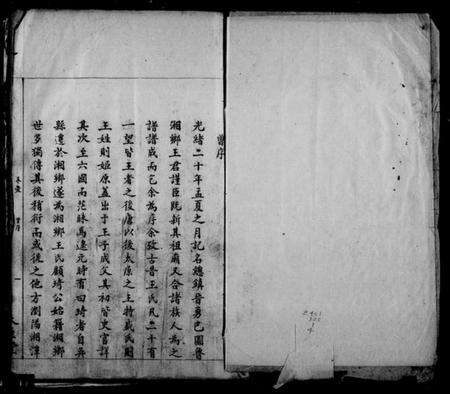 譜序
光緒二十年孟夏之月記名總鎮晉勇巴圖魯
湘鄉王君謹臣既新其祖廟又合諸族人為之
譜譜成而乞余為序余攷古晉王氏凡二十有
一望皆王者之後唐以後太原之王特盛民國
王姓則姬原蓋出于王子成父其初皆史官詳
其次至六國而茫昧焉遠元時有曰琦者自吳
縣遷於湘鄉遂為湘鄉王氏顧琦公始籍湘鄉
世多獨傳其後稍衍而或後之他方瀏陽湘潭